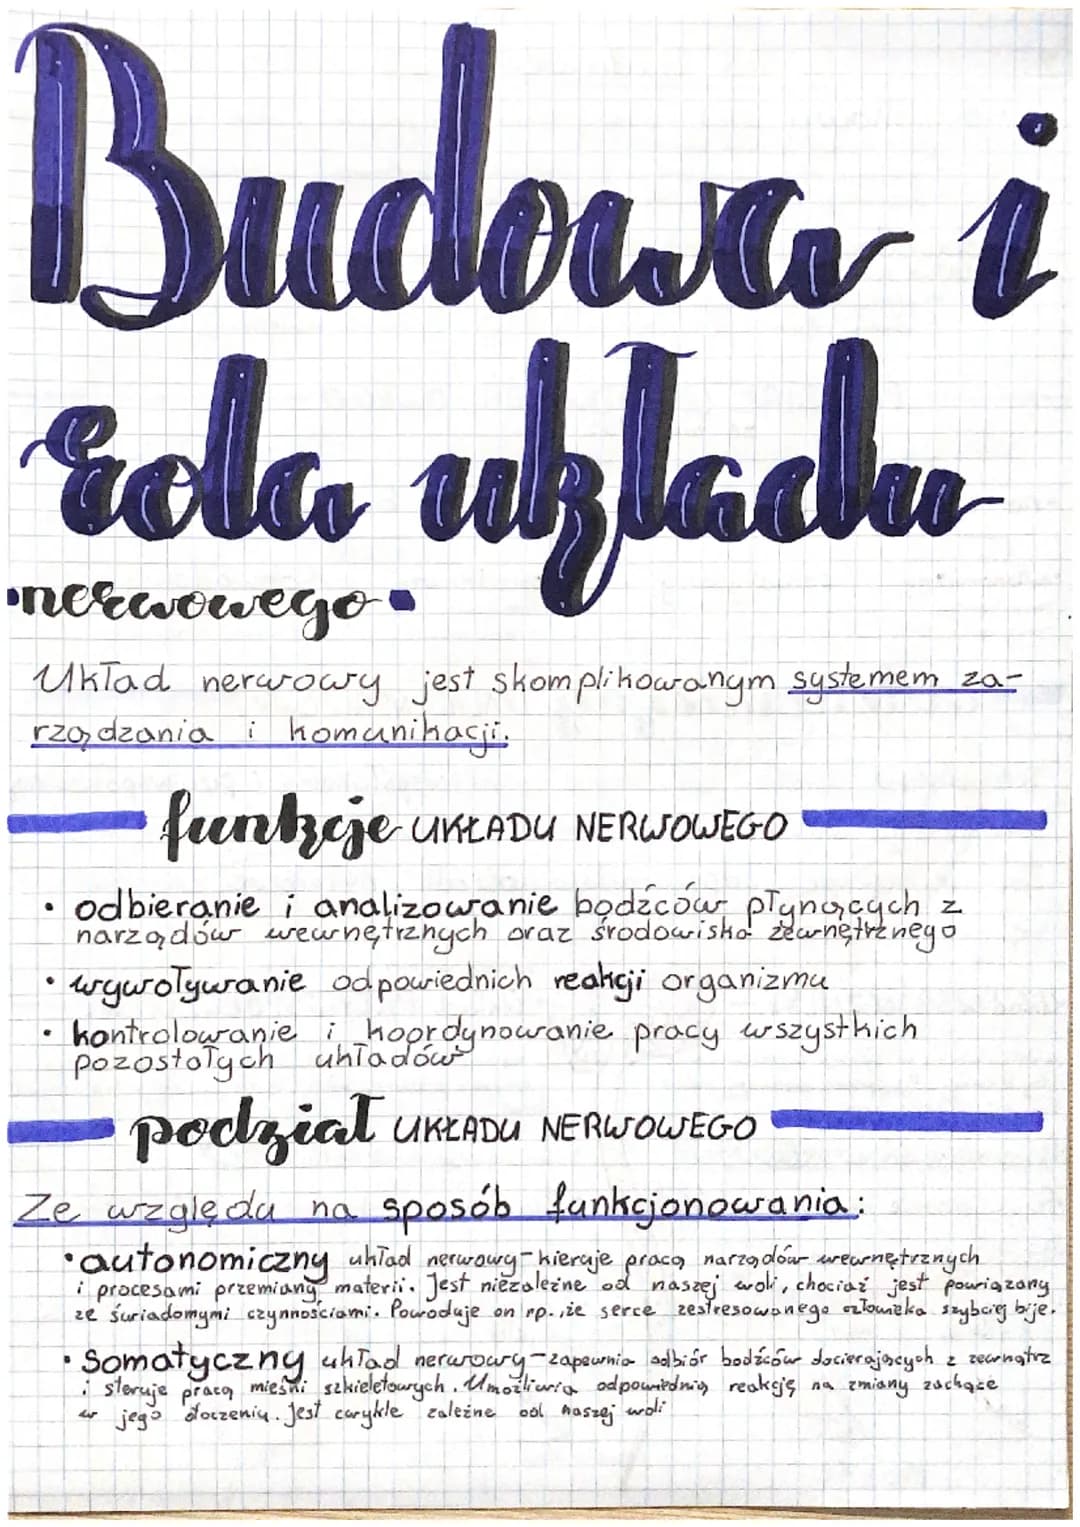 Budowa i
rola układu
•nerwowego•
Układ nerwowy jest skomplikowanym systemem za-
rządzania i komunikacji.
funkcje UKŁADU NERWOWEGO
• odbieranie i analizowanie bodźców płynących z
narządów wewnętrznych oraz środowiska zewnętrznego
• wywoływanie odpowiednich reakcji organizmu
• kontrolowanie i koordynowanie pracy wszystkich
pozostałych układów
podział UKŁADU NERWOWEGO
Ze względu na sposób funkcjonowania:
• autonomiczny układ nerwowy - kieruje pracą narządów wewnętrznych
i procesami przemiany materii. Jest niezależne od naszej woli, chociaż jest powiązany
ze świadomymi czynnościami. Powoduje on np., że serce zestresowanego człowieka szybciej bije.
• Somatyczny układ nerwowy - zapewnia odbiór bodźców docierających z zewnątrz
i steruje pracą mięśni szkieletowych. Umożliwia odpowiednią reakcję na zmiany zachące
w jego otoczeniu. Jest zależne od naszej woli